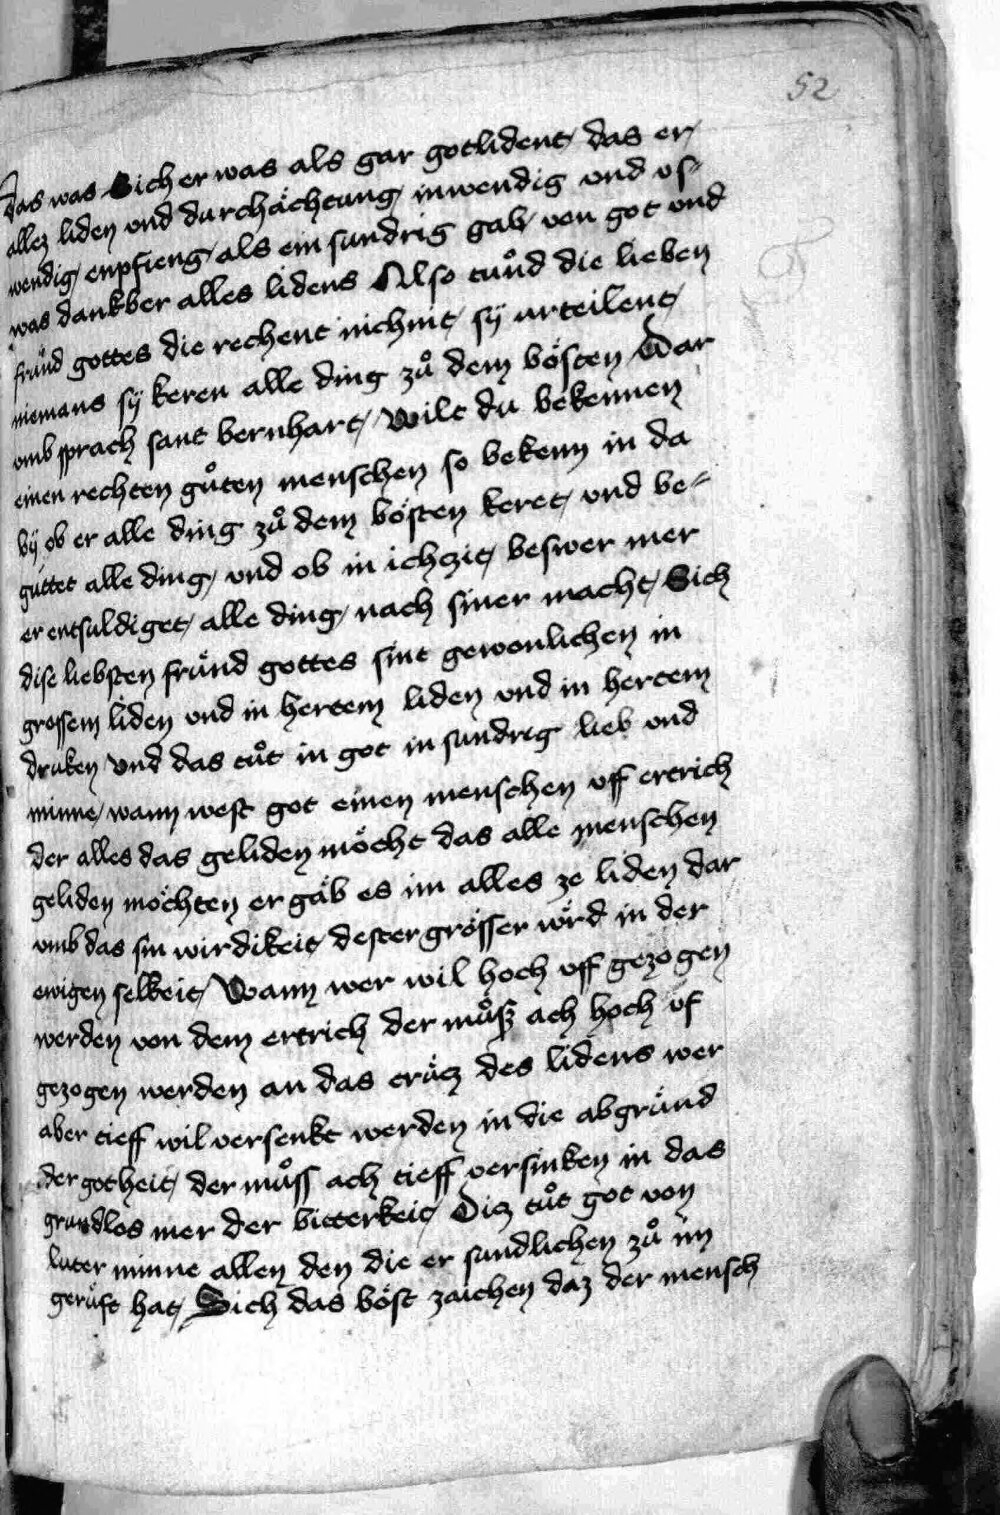 52
das was Sich er was als gar gotlident das er
allez liden vnd durchächtung inwendig vnd vs-
wendig enpfieng als ein sundrig gab von got vnd
was dankber alles lidens Also tuͦnd die lieben
fruͤnd gottes die rechent nichtnit sÿ urteilent
niemans sÿ keren alle ding zuͦ dem bösten Dar
vmb sprach sant bernhart Wilt du bekennen
einen rechten guͦten menschen so bekenn in da
bÿ ob er alle ding zuͦ dem bösten keret vnd be-
guttet alle ding vnd ob in ichzit beswer mer
er entsuldiget alle ding nach siner macht Sich
dise liebsten fruͤnd gottes sint gewonlichen in
grossem liden vnd in hertem liden vnd in hertem
druken vnd das tuͦt in got in sundreg lieb vnd
minne wann west got einen menschen vff ertrich
der alles das geliden möcht das alle menschen
geliden möchten er gäb es im alles ze liden dar
vmb das sin wirdikeit dester grösser wörd in der
ewigen selkeit Wann wer wil hoch vff gezogen
werden von dem ertrich der muͦß ach hoch vf
gezogen werden an das crütz des lidens wer
aber tieff wil versenkt werden in die abgründ
der gotheit der muͦss ach tieff versinken in das
grundlos mer der bitterkeit Diz tuͦt got von
luter minne allen den die er sundlichen zuͦ im
gerüft hat Sich das böst zaichen daz der mensch